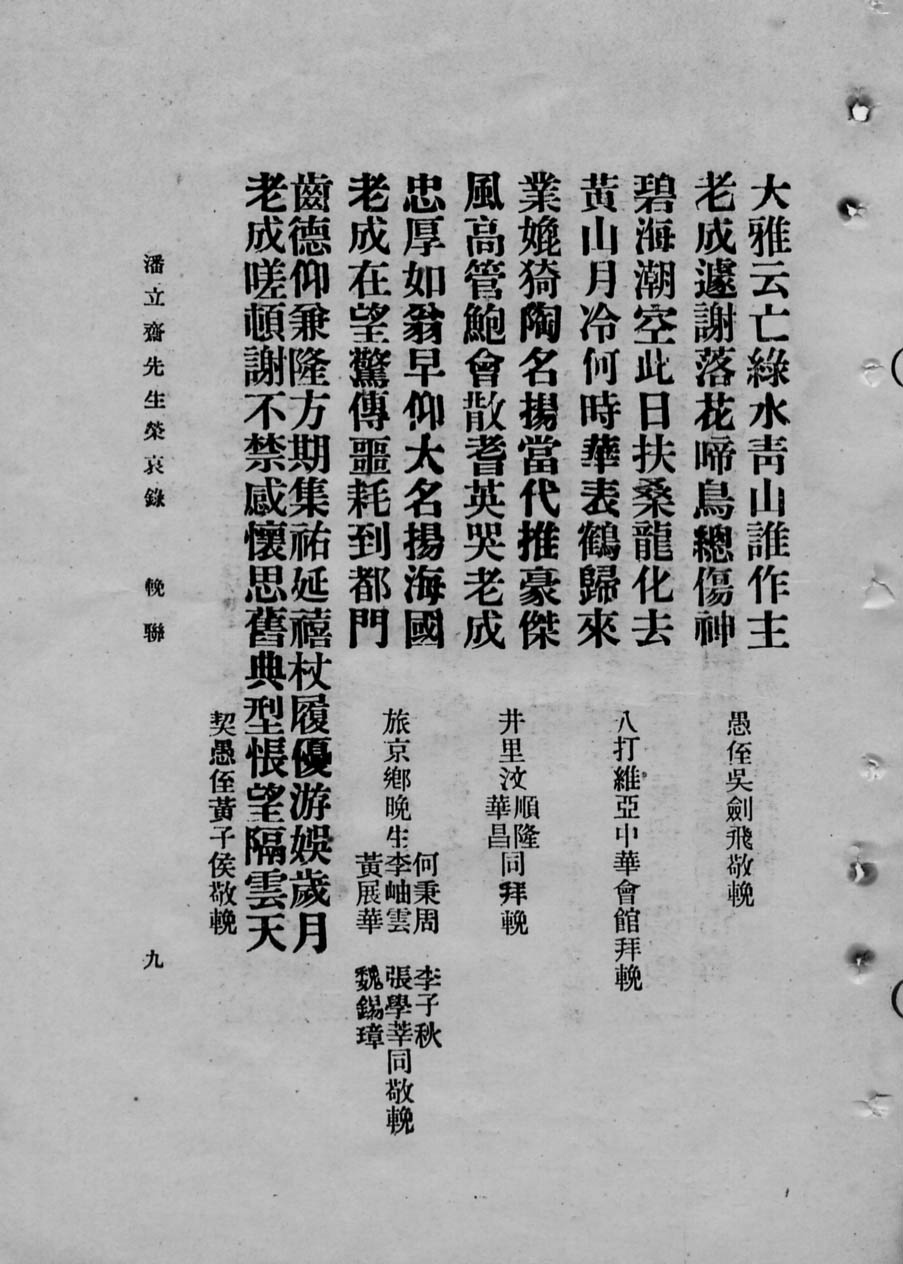 大雅云亡綠水靑山誰作主
老成遽謝落花啼鳥總傷神
愚侄吳劍飛敬輓
碧海潮空此日扶桑龍化去
黃山月冷何時華表鶴歸來
八打維亞中華會館拜輓
業媲猗陶名揚當代推豪傑
風高管鮑會散耆英哭老成
井里汶順隆華昌同拜輓
忠厚如翁早仰大名揚海國
老成在望驚傳噩耗到都門
旅京鄉晚生何秉周李岫雲黃展華李子秋張學莘魏錫璋同敬輓
齒德仰兼隆方期集祐延禧杖履優游娛歲月
老成嗟頓謝不禁感懷思舊典型悵望隔雲天
契愚侄黃子侯敬輓
潘立齋先生榮哀錄 輓聯 九